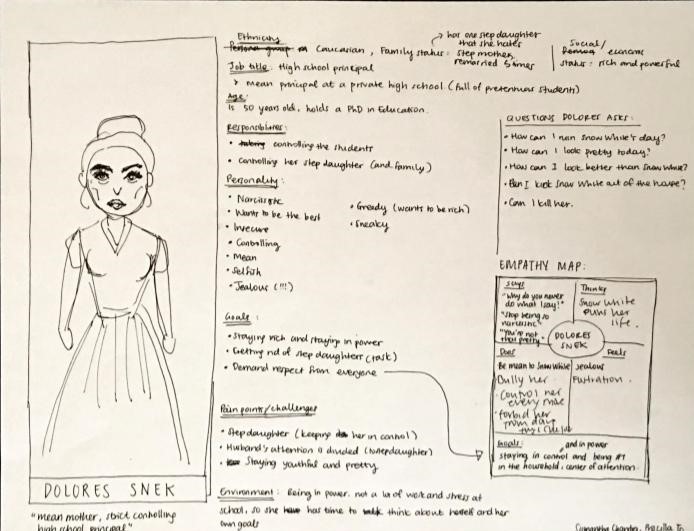 Ethnicity
Caucasian, Family status: step mother,
remarried 5 times
has one step daughter
that she hates
Social/
economic
status: rich and powerful
Job title: High school principal
mean principal at a private high school. (full of pretentious students)
Age:
is 50 years old, holds a PhD in Education.
Responsibilities:
• controlling the students
• Controlling her step daughter (and family)
Personality:
• Narcissistic
• Wants to be the best
• Insecure
• Controlling
• Mean
• Selfish
• Jealous (!!!)
• Greedy (wants to be rich)
• Sneaky
Goals:
• Staying rich and staying in power
• Getting rid of step daughter (task)
• Demand respect from everyone
Pain points/challenges
• Stepdaughter (keeping her in control)
• Husband's attention is divided (to stepdaughter)
• Staying youthful and pretty
Environment: Being in power. not a lot of work and stress at
school, so she has time to think about herself and her
own goals
QUESTIONS DOLORES ASKS:
• How can I ruin Snow White's day?
• How can I look pretty today?
• How can I look better than Snow White?
• Can I kick Snow White out of the house?
• Can I kill her.
EMPATHY MAP:
Says
"Why do you never
do what I say!"
"Stop being so
narcissistic"
"You're not
that pretty"
Thinks
Snow White
ruins her
life.
DOLORES
SNEK
Does
Be mean to Snow White
Bully her
• Control her
every move
• forbid her
from
Feels
jealous
Fustration.
Goals: and in power
staying in control and being #1
in the household, center of attention.
DOLORES SNEK
"mean mother, strict controlling
high school principal"
Samantha Priscilla